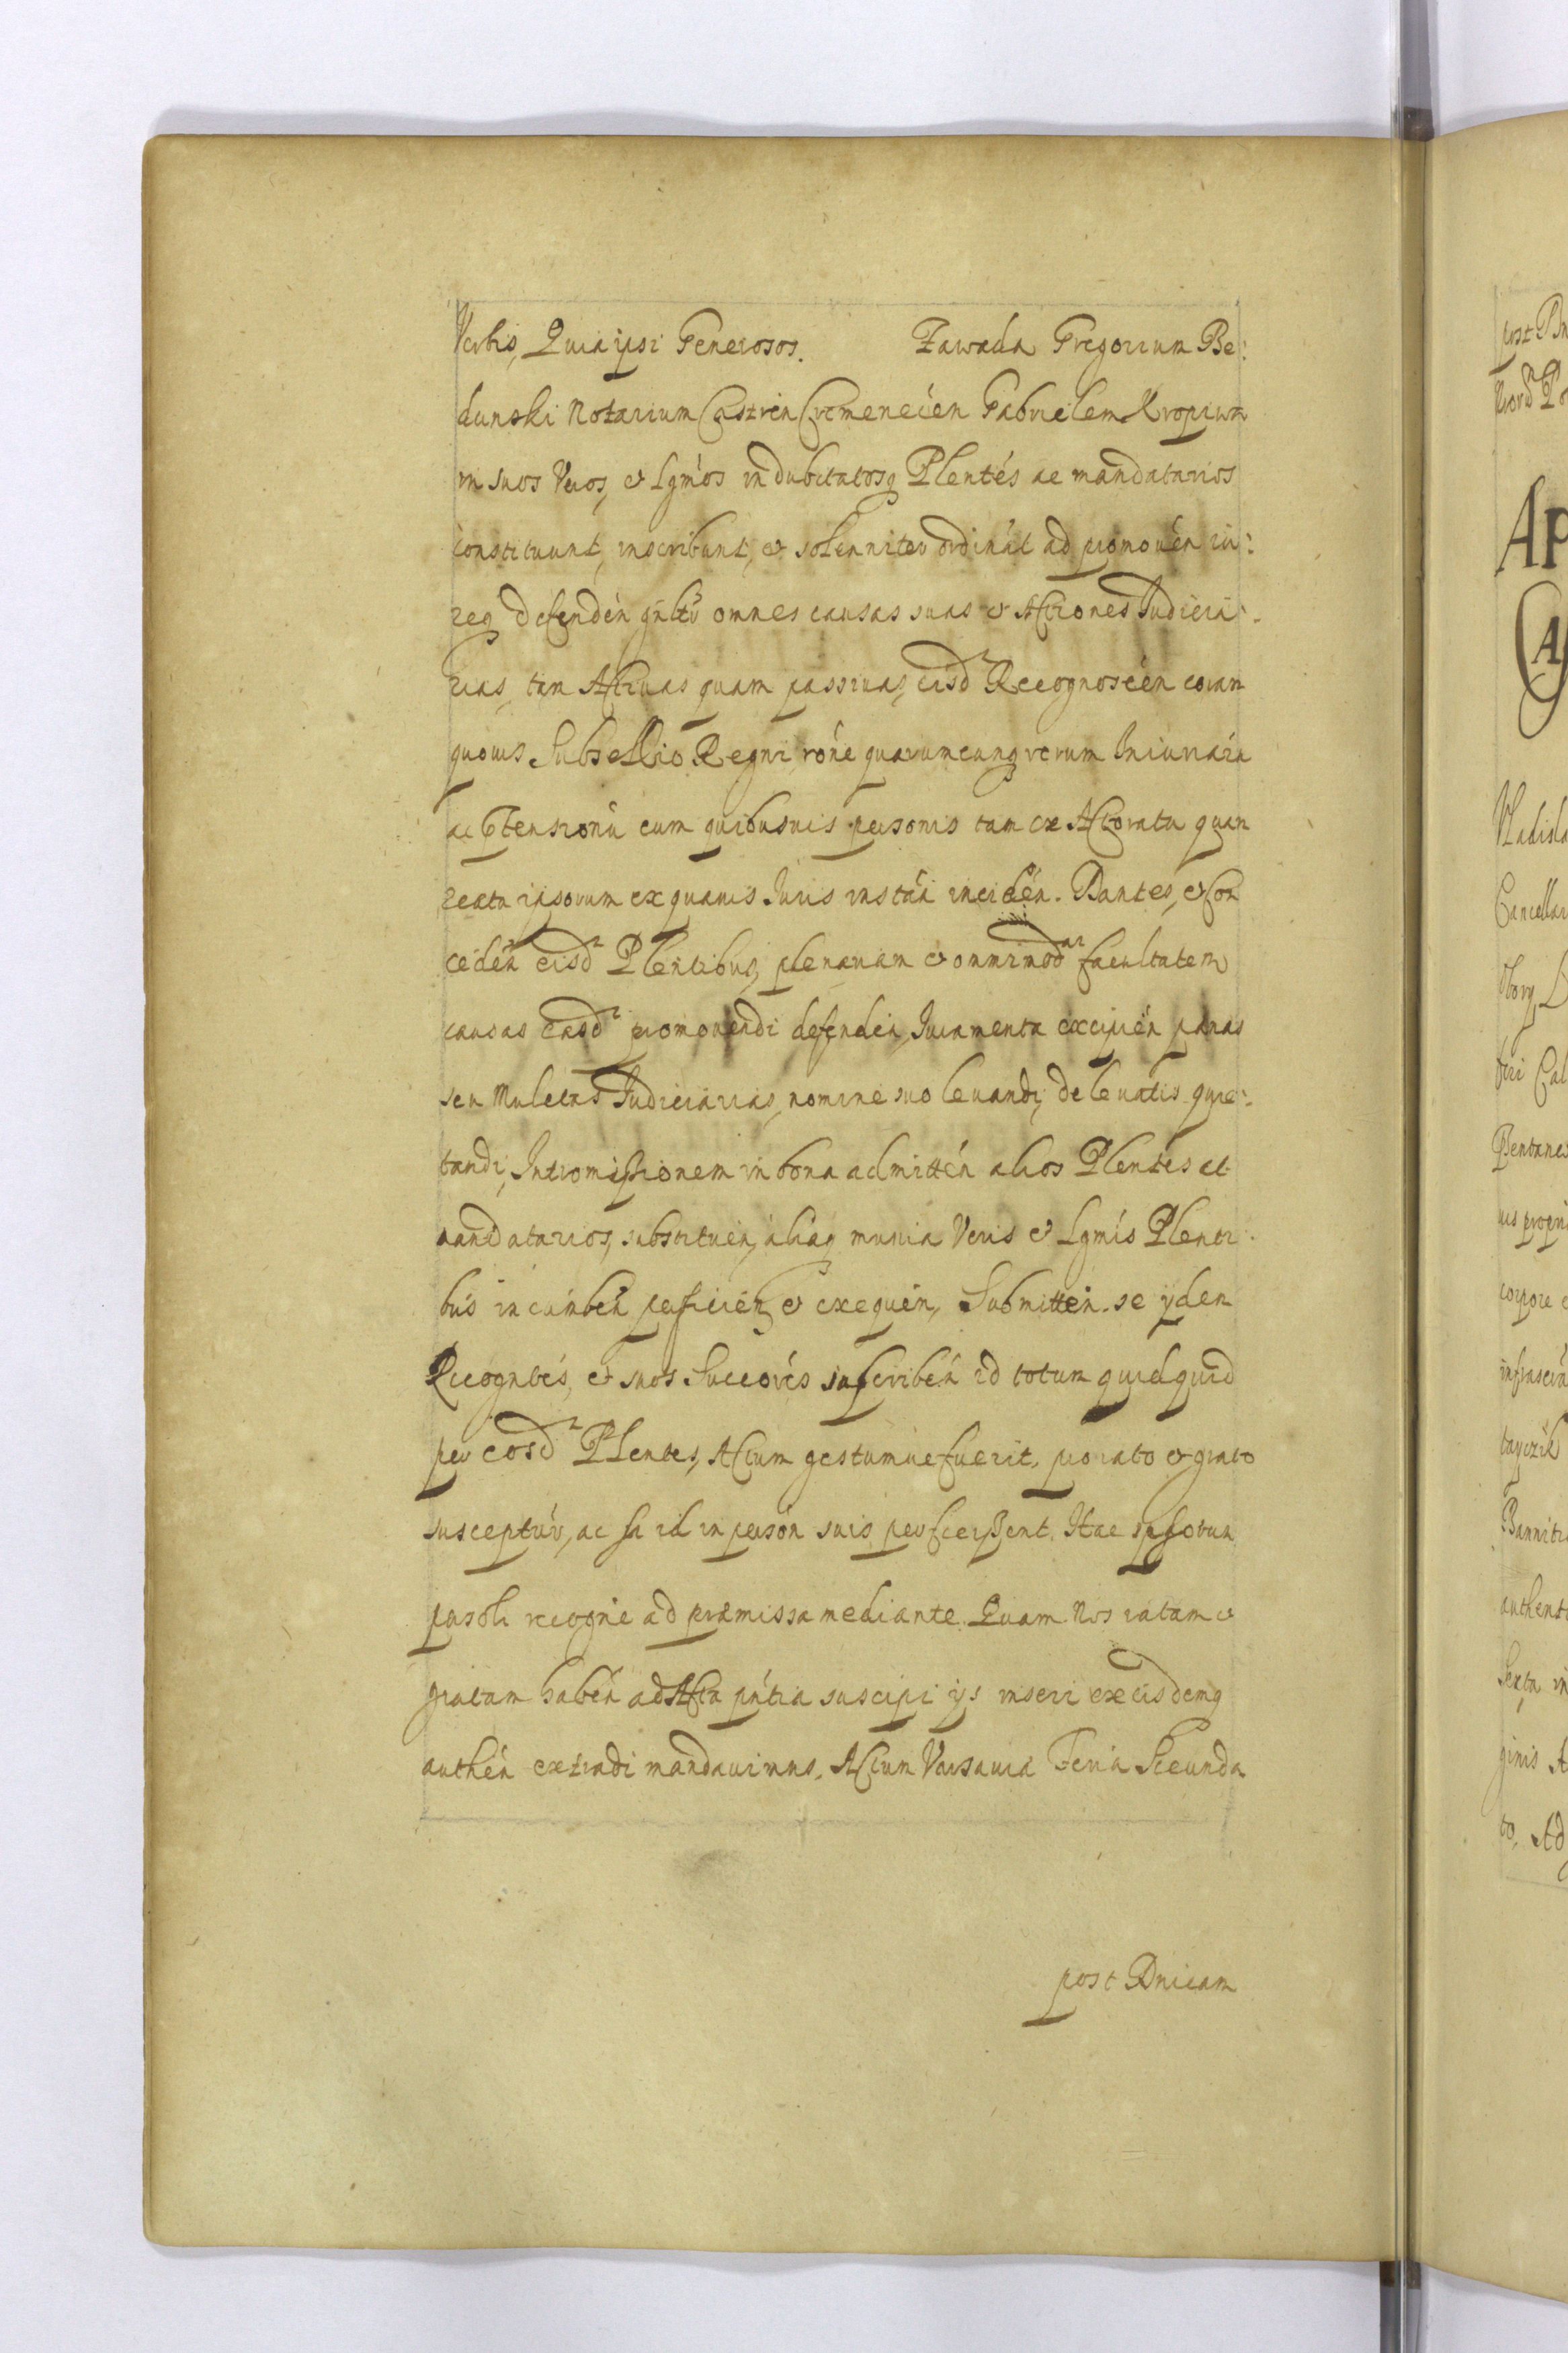 Verbis, Quia ipsi Generosos. Zawada Gregorium Be:
dunski Notarium Castren Cremenecén Gabrielem Kropiwn
in suos Veros, et Lgmôs indubitatosq Plentés ac mandatarios
constituunt, inscribunt, et solenniter ordinát ad promouén iu:
req defendén gnlr omnes causas suas et Actiones Judicia:
rias, tam Actiuas quam passiuas, eisd Recognoscén coram
quouis Subsellio Regni, rône quarumcunq rerum Iniuriarũ
ac Ptensionũ cum quibusuis personis tam ex Actoratu quam
reatu ipsorum ex quauis Iuris instan incidén. Dantes, et Con
cedén eisd Plentibus, plenariam et omnimod facultatem
causas easd promouendi defenden, Iuramenta excipién pænas
seu Mulctas Judiciarias, nomine suo leuandi, de leuatis quie:
tandi, Intromissionem in bona admittén alios Plentés et
mandatarios, substituén, aliaq munia Veris et Lgmis Plenti:
bus incumbén perficién, et exequén, Submittén se ijdem
Recogntés, et suos Succorés suscribén id totum quidquid
per eosd Plentes, Actum gestumue fuerit, pro rato et grato
susceptur, ac si id in person suis perfecissent. Hac ipsorum
psoli recogne ad præmissa mediante. Quam Nos ratam et
gratam habén ad Acta pntia suscipi ijs inseri ex eisdemq
authén extradi mandauimus. Actum Varsauia Feria Secunda
post Dnicam
post Dn
AP
Vladisla
Cancellar
Pentanes
corpore
infrascrn
Bannitio
authent
Sexta in
ginis A
to. Ad